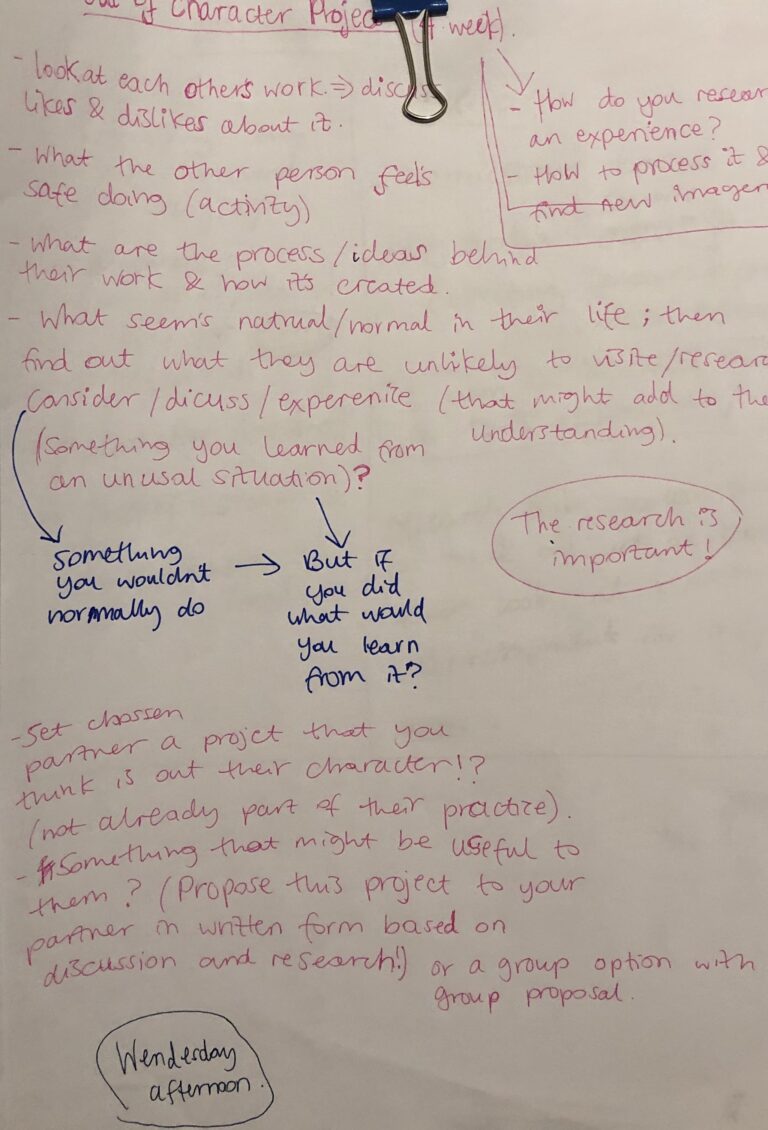 of Character Project (4 week).
- look at each other's work => discuss
likes & dislikes about it.
- What the other person feel's
safe doing (activity)
- what are the process/ideas behind
their work & how it's created.
- What seem's natrual/normal in their life; then
find out what they are unlikely to visite/resear
consider/dicuss/experenite (that might add to the
understanding).
(Something you learned from
an unusal situation)?
- How do you resear
an experience?
- How to process it &
find new imager
something
you wouldn't
normally do
But if
you did
what would
you learn
from it?
The research is
important!
- Set chossen
partner a projet that you
think is out their character!?
(not already part of their practize).
- Something that might be useful to
them? (Propose this project to your
partner in written form based on
discussion and research!) or a group option with
group proposal.
Wenderday
afternoon.